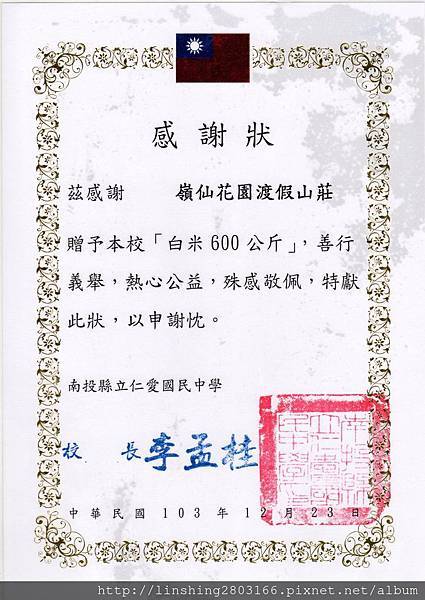 感謝狀
茲感謝　嶺仙花園渡假山莊
贈予本校「白米600公斤」，善行
義舉，熱心公益，殊感敬佩，特獻
此狀，以申謝忱。
南投縣立仁愛國民中學
校　長 李孟桂
中華民國 103 年 12 月 23 日
南投縣立仁愛國民中學
http://linshing2803166.pixnet.net/album